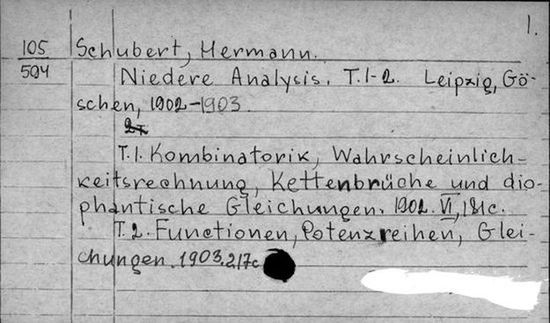 1.
105 Schubert, Hermann.
594 Niedere Analysis. T.1-2. Leipzig, Gö-
schen, 1902-1903.
T.1. Kombinatorik, Wahrscheinlich-
keitsrechnung, Kettenbrüche und dio-
phantische Gleichungen. 1902. VI, 181c.
T.2. Functionen, Potenzreihen, Glei-
chungen. 1903. 217c